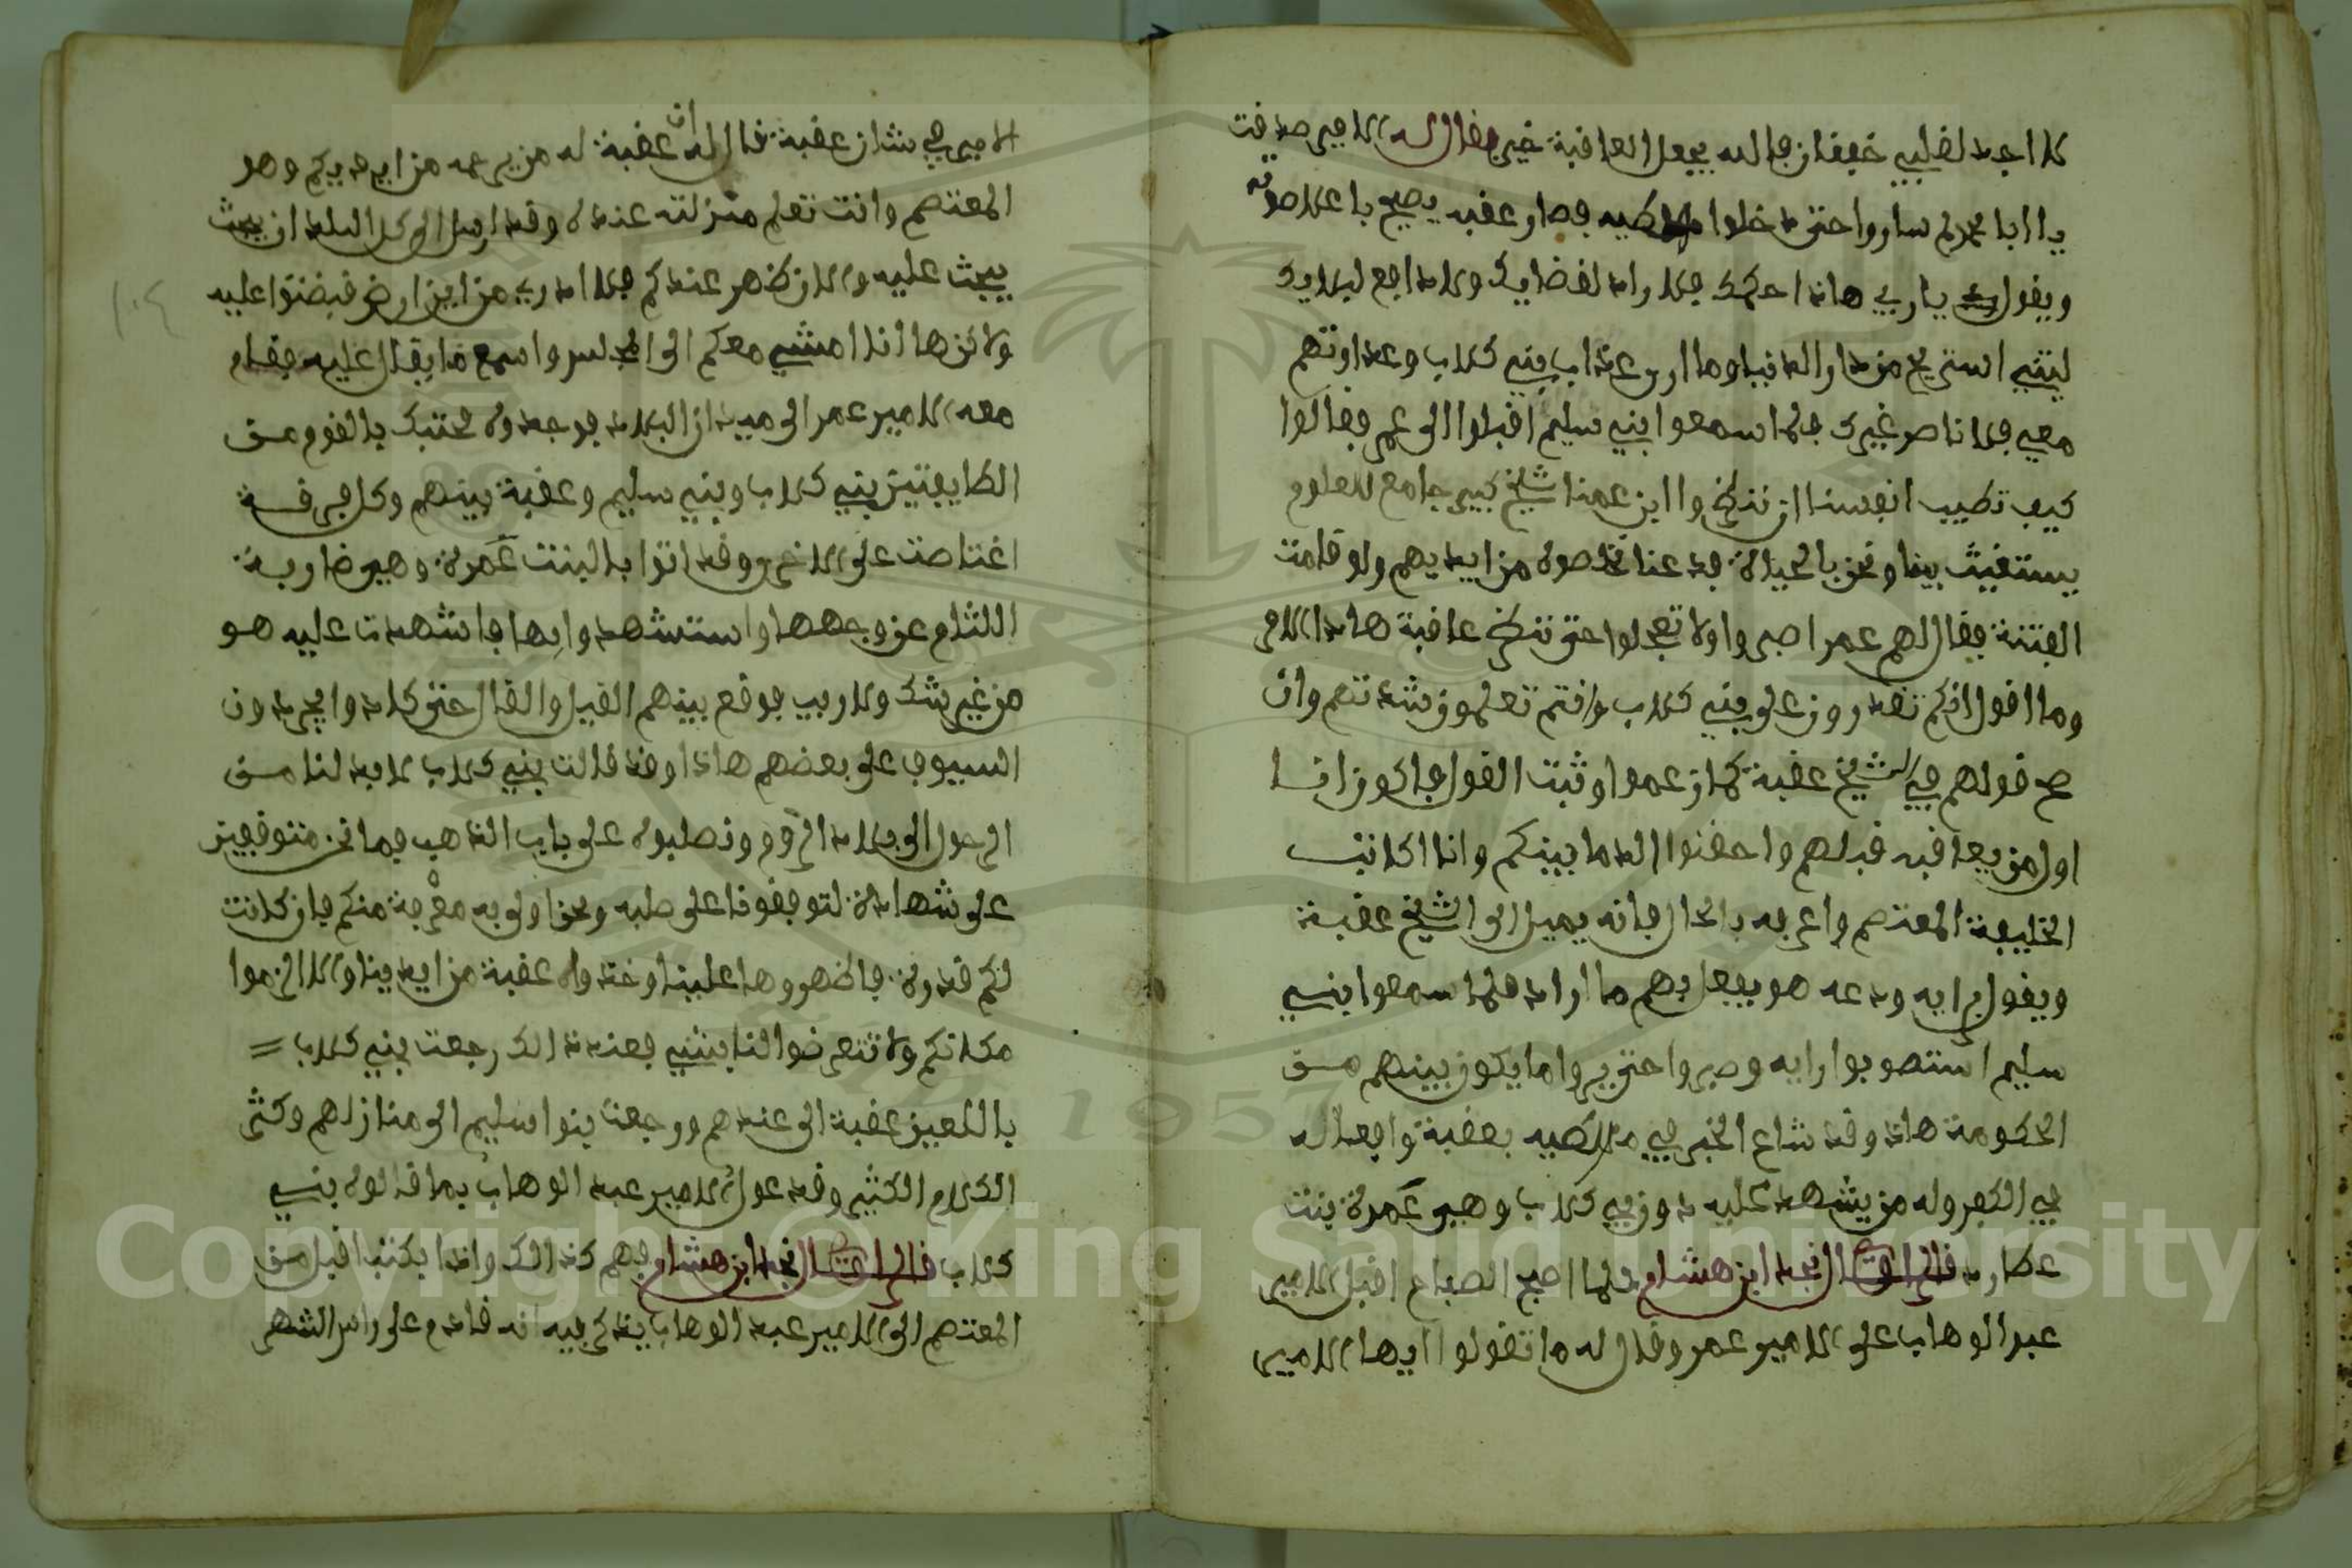 لا اجد لقلبي خفقان فالله يجعل العاقبة خير فقال له الامير صدقت
يا ابا محمد ثم ساروا حتى دخلوا ملطيه فصار عقبه يصيح باعلا صوته
ويقول يا ربي هاذا حكمك فلا راد لقضايك ولا دافع لبلايك
ليتني استريح من دار الدنيا وما ارى عذاب بني كلاب وعداوتهم
معي فلا ناصر غيرك فلما سمعوا بني سليم اقبلوا الى عمر فقالوا
كيف تطيب انفسنا ان ننظروا ابن عمنا شيخ كبير جامع للعلوم
يستغيث بينا ونحن بالحياة فدعنا نخلصوه من ايديهم ولو قامت
الفتنة فقال لهم عمر اصبروا ولا تعجلوا حتى ننظر عاقبة هاذا الامر
وما اقول انكم تقدرون على بني كلاب وانتم تعلمون شدتهم وان
صح قولهم في الشيخ عقبة كما زعموا وثبت القول فاكون انا
اول من يعاقبه قبلهم واحقنوا الدما بينكم وانا اكاتب
الخليفة المعتصم واعرفه بالحال فانه يميل الى الشيخ عقبة
ويقول برايه ودعه هو يفعل بهم ما اراد فلما سمعوا بني
سليم استصوبوا رايه وصبروا حتى يروا ما يكون بينهم من
الحكومة هاذا وقد شاع الخبر في ملطيه بعقبة وافعاله
في الكفر وله من يشهد عليه دون بني كلاب وهي عمرة بنت
عطارد قال الراوي نجد ابن هشام فلما اصبح الصباح اقبل الامير
عبد الوهاب على الامير عمر وقال له ما تقولوا ايها الامير
الامير في شان عقبة قال له ان عقبة له من يرحمه من ايديكم وهو
المعتصم وانت تعلم منزلته عنده وقد ارسل الى كل البلد ان يبحث
يبحث عليه والان ظهر عندكم فلا ادري من اين ارض قبضتوا عليه
ولاكن ها انا امشي معكم الى المجلس واسمع ما يقال عليه فقام
معه الامير عمر الى ميدان البلاد فوجدوه محتبك بالقوم من
الطايفتين بني كلاب وبني سليم وعقبة بينهم وكل فرقة
اغتاضت على الاخر وقد اتوا بالبنت عمرة وهي ضاربة
اللثام عن وجهها واستشهدوا بها فاشهدت عليه هو
من غير شك ولا ريب فوقع بينهم القيل والقال حتى كادوا يجردون
السيوف على بعضهم هاذا وقد قالت بني كلاب لا بد لنا من
الرحول الى بلاد الروم ونصلبوه على باب الذهب فما نحن متوقفين
على شهادة لتوقفونا على صلبه ونحن اولى به معرفة منكم فان كانت
لكم قدرة فاظهروها علينا وخذوا عقبة من ايدينا والا الزموا
مكانكم ولا تتعرضوا لنا بشي فعند ذالك رجعت بني كلاب =
باللعين عقبة الى عندهم ورجعت بنوا سليم الى منازلهم وكثر
الكلام الكثير وقد عول الامير عبد الوهاب بما قالوه بني
كلاب قال الراوي نجد ابن هشام فهم كذالك واذا بكتب اقبل من
المعتصم الى الامير عبد الوهاب يذكر فيه انه قادم على راس الشهر
١٠٤
Copyright © King Saud University
1957